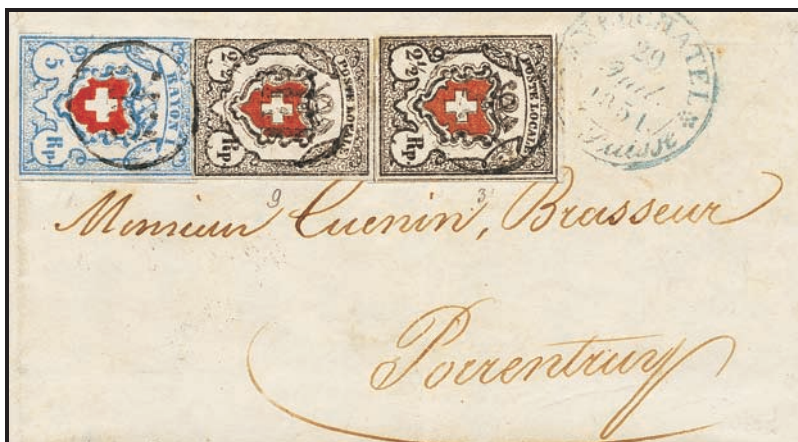 5
RAYON I
Rp
2½
POSTE LOCALE
Rp
2½
POSTE LOCALE
Rp
NEUCHATEL
29
1851
Suisse
9
3
Monsieur Cuenin, Brasseur
Porrentruy